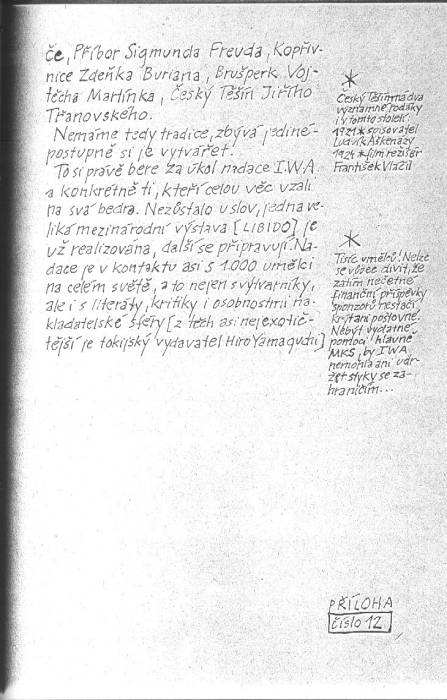 če, Příbor Sigmunda Freuda, Kopřiv-
nice Zdeňka Buriana, Brušperk Voj-
těcha Martínka, Český Těšín Jiřího
Třanovského.
Nemáme tedy tradice, zbývá jediné-
postupně si je vytvářet.
To si právě bere za úkol nadace I.W.A.
a konkrétně ti, kteří celou věc vzali
na svá bedra. Nezůstalo u slov, jedna ve-
liká mezinárodní výstava [LIBIDO] je
už realizována, další se připravují. Na-
dace je v kontaktu asi s 1.000 umělci
na celém světě, a to nejen s výtvarníky,
ale i s literáty, kritiky i osobnostmi na-
kladatelské sféry [z těch asi nejexotič-
tější je tokijský vydavatel Hiro Yamagudii]
*
Český Těšín má dva
významné rodáky
i v tomto století:
1921 * spisovatel
Ludvík Aškenazy
1924 * film. režisér
František Vláčil
*
Tisíc umělců! Nelze
se vůbec divit, že
zatím nečetné
finanční příspěvky
sponzorů nestačí
krýt ani poštovné.
Nebýt vydatné
pomoci hlavně
MKS, by I.W.A.
nemohla ani udr-
žet styky se za-
hraničím...
PŘÍLOHA
číslo 12